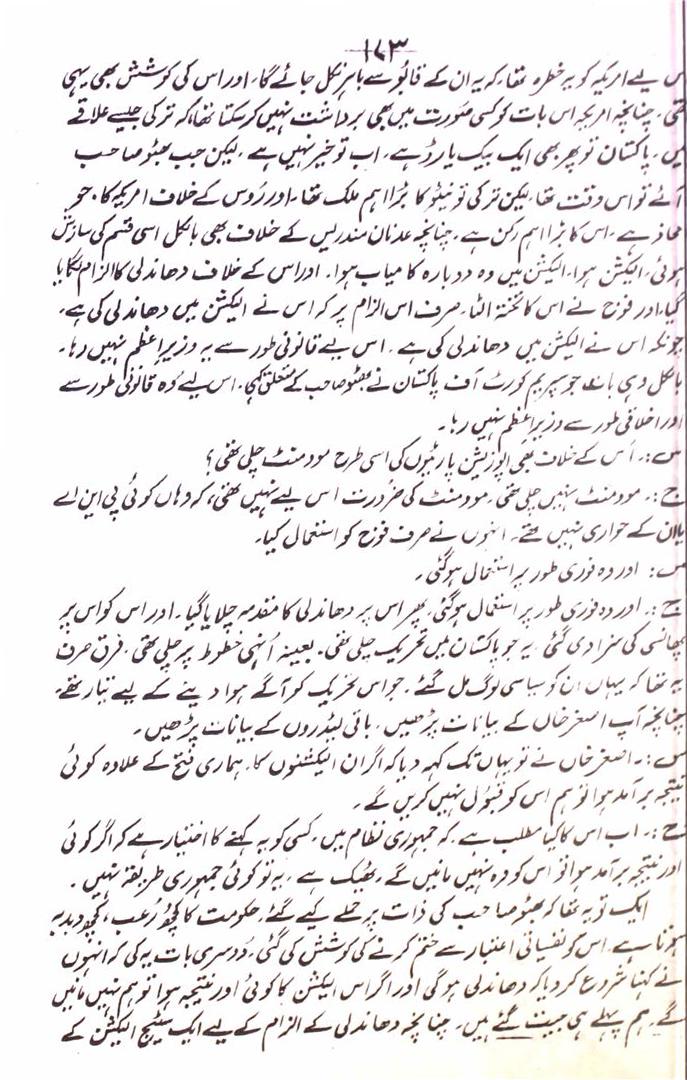 ۱۷۳
س لیے امریکہ کو یہ خطرہ تھا، کہ یہ ان کے قابو سے باہر نکل جائے گا، اور اس کی کوشش بھی یہی
تھی، چنانچہ امریکہ اس بات کو کسی صورت میں بھی برداشت نہیں کر سکتا تھا، کہ ترکی جیسے علاقے
میں، پاکستان تو پھر بھی ایک بیک یارڈ ہے، اب تو خیر نہیں ہے، لیکن جب بھٹو صاحب
آئے تو اس وقت تھا، لیکن ترکی تو نیٹو کا بڑا اہم ملک تھا، اور رُوس کے خلاف امریکہ کا، جو
محاذ ہے، اس کا بڑا اہم رکن ہے، چنانچہ عدنان مندریس کے خلاف بھی بالکل اسی قسم کی سازش
ہوئی، الیکشن ہوا، الیکشن میں وہ دوبارہ کامیاب ہوا، اور اس کے خلاف دھاندلی کا الزام لگایا
گیا، اور فوج نے اس کا تختہ الٹا، صرف اس الزام پر کہ اس نے الیکشن میں دھاندلی کی ہے،
چونکہ اس نے الیکشن میں دھاندلی کی ہے، اس لیے قانونی طور سے یہ وزیرِاعظم نہیں رہا۔
بالکل وہی بات جو سپریم کورٹ آف پاکستان نے بھٹو صاحب کے متعلق کہی، اس لیے وُہ قانونی طور سے
اور اخلاقی طور سے وزیرِاعظم نہیں رہا۔
س:۔ اُس کے خلاف بھی اپوزیشن پارٹیوں کی اسی طرح موومنٹ چلی تھی؟
ج:۔ موومنٹ نہیں چلی تھی، موومنٹ کی ضرورت اس لیے نہیں تھی، کہ وہاں کوئی پی این اے
یا ان کے حواری نہیں تھے، انہوں نے صرف فوج کو استعمال کیا۔
س: اور وہ فوری طور پر استعمال ہوگئی۔
ج:۔ اور وہ فوری طور پر استعمال ہوگئی، پھر اس پر دھاندلی کا مقدمہ چلایا گیا، اور اس کو اس پر
پھانسی کی سزا دی گئی، یہ جو پاکستان میں تحریک چلی تھی۔ بعینہ اُنہی خطوط پر چلی تھی، فرق صرف
یہ تھا کہ یہاں ان کو سیاسی لوگ مل گئے، جو اس تحریک کو آگے ہوا دینے کے لیے تیار تھے،
چنانچہ آپ اصغر خاں کے بیانات پڑھیں، باقی لیڈروں کے بیانات پڑھیں۔
س:۔ اصغر خاں نے تو یہاں تک کہہ دیا کہ اگر ان الیکشنوں کا، ہماری فتح کے علاوہ کوئی
نتیجہ برآمد ہوا تو ہم اس کو قبول نہیں کریں گے۔
ج:۔ اب اس کا کیا مطلب ہے، کہ جمہوری نظام میں، کسی کو یہ کہنے کا اختیار ہے کہ اگر کوئی
اور نتیجہ برآمد ہوا تو اس کو وہ نہیں مانیں گے، ٹھیک ہے، یہ تو کوئی جمہوری طریقہ نہیں۔
ایک تو یہ تھا کہ بھٹو صاحب کی ذات پر حملے کیے گئے، حکومت کا کچھ رُعب، کچھ دبدبہ
ہوتا ہے، اس کو نفسیاتی اعتبار سے ختم کرنے کی کوشش کی گئی، دوسری بات یہ کی کہ انہوں
نے کہنا شروع کر دیا کہ دھاندلی ہوگی اور اگر اس الیکشن کا کوئی اور نتیجہ ہوا تو ہم نہیں مانیں
گے۔ ہم پہلے ہی جیت گئے ہیں۔ چنانچہ دھاندلی کے الزام کے لیے ایک سٹیج الیکشن کے